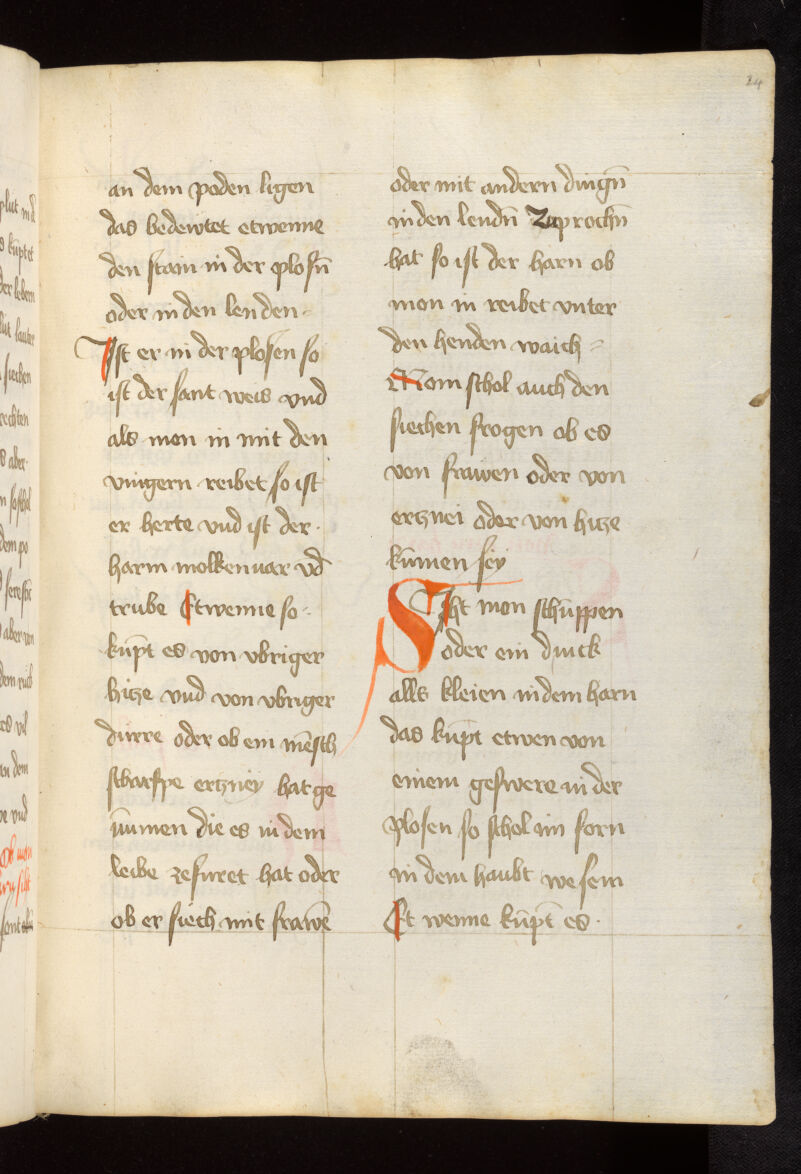 24
an dem poden ligen
das bedewtet etwenne
den stain in der plosn̄
oder in den lenden
Ist er in der plosen so
ist der sant weis vnd
als mon in mit den
vingern reibet so ist
er herte vnd ist der
harm molkenuar vd̄
trube Etwenne so
kūpt es von vbriger
hitze vnd von vbriger
durre oder ob ein mēsch
scharfpe ertzney hat ge
nūmen die es in dem
leibe zefuret hat oder
ob er siech mit frawē
oder mit andern dingn̄
in den lendn̄ zuprochn̄
hat so ist der harn ob
mon in reibet vnter
den henden waich
Mom schol auch den
siechen frogen ob es
von frawen oder von
ertznei oder von hitze
kūmen sey
Siht mon schuppen
oder ein dinck
alls kleien in dem harn
das kūpt etwen von
einem geswere in der
plosen so schol im forn
in dem haubt we sein
Et wenne kūpt es